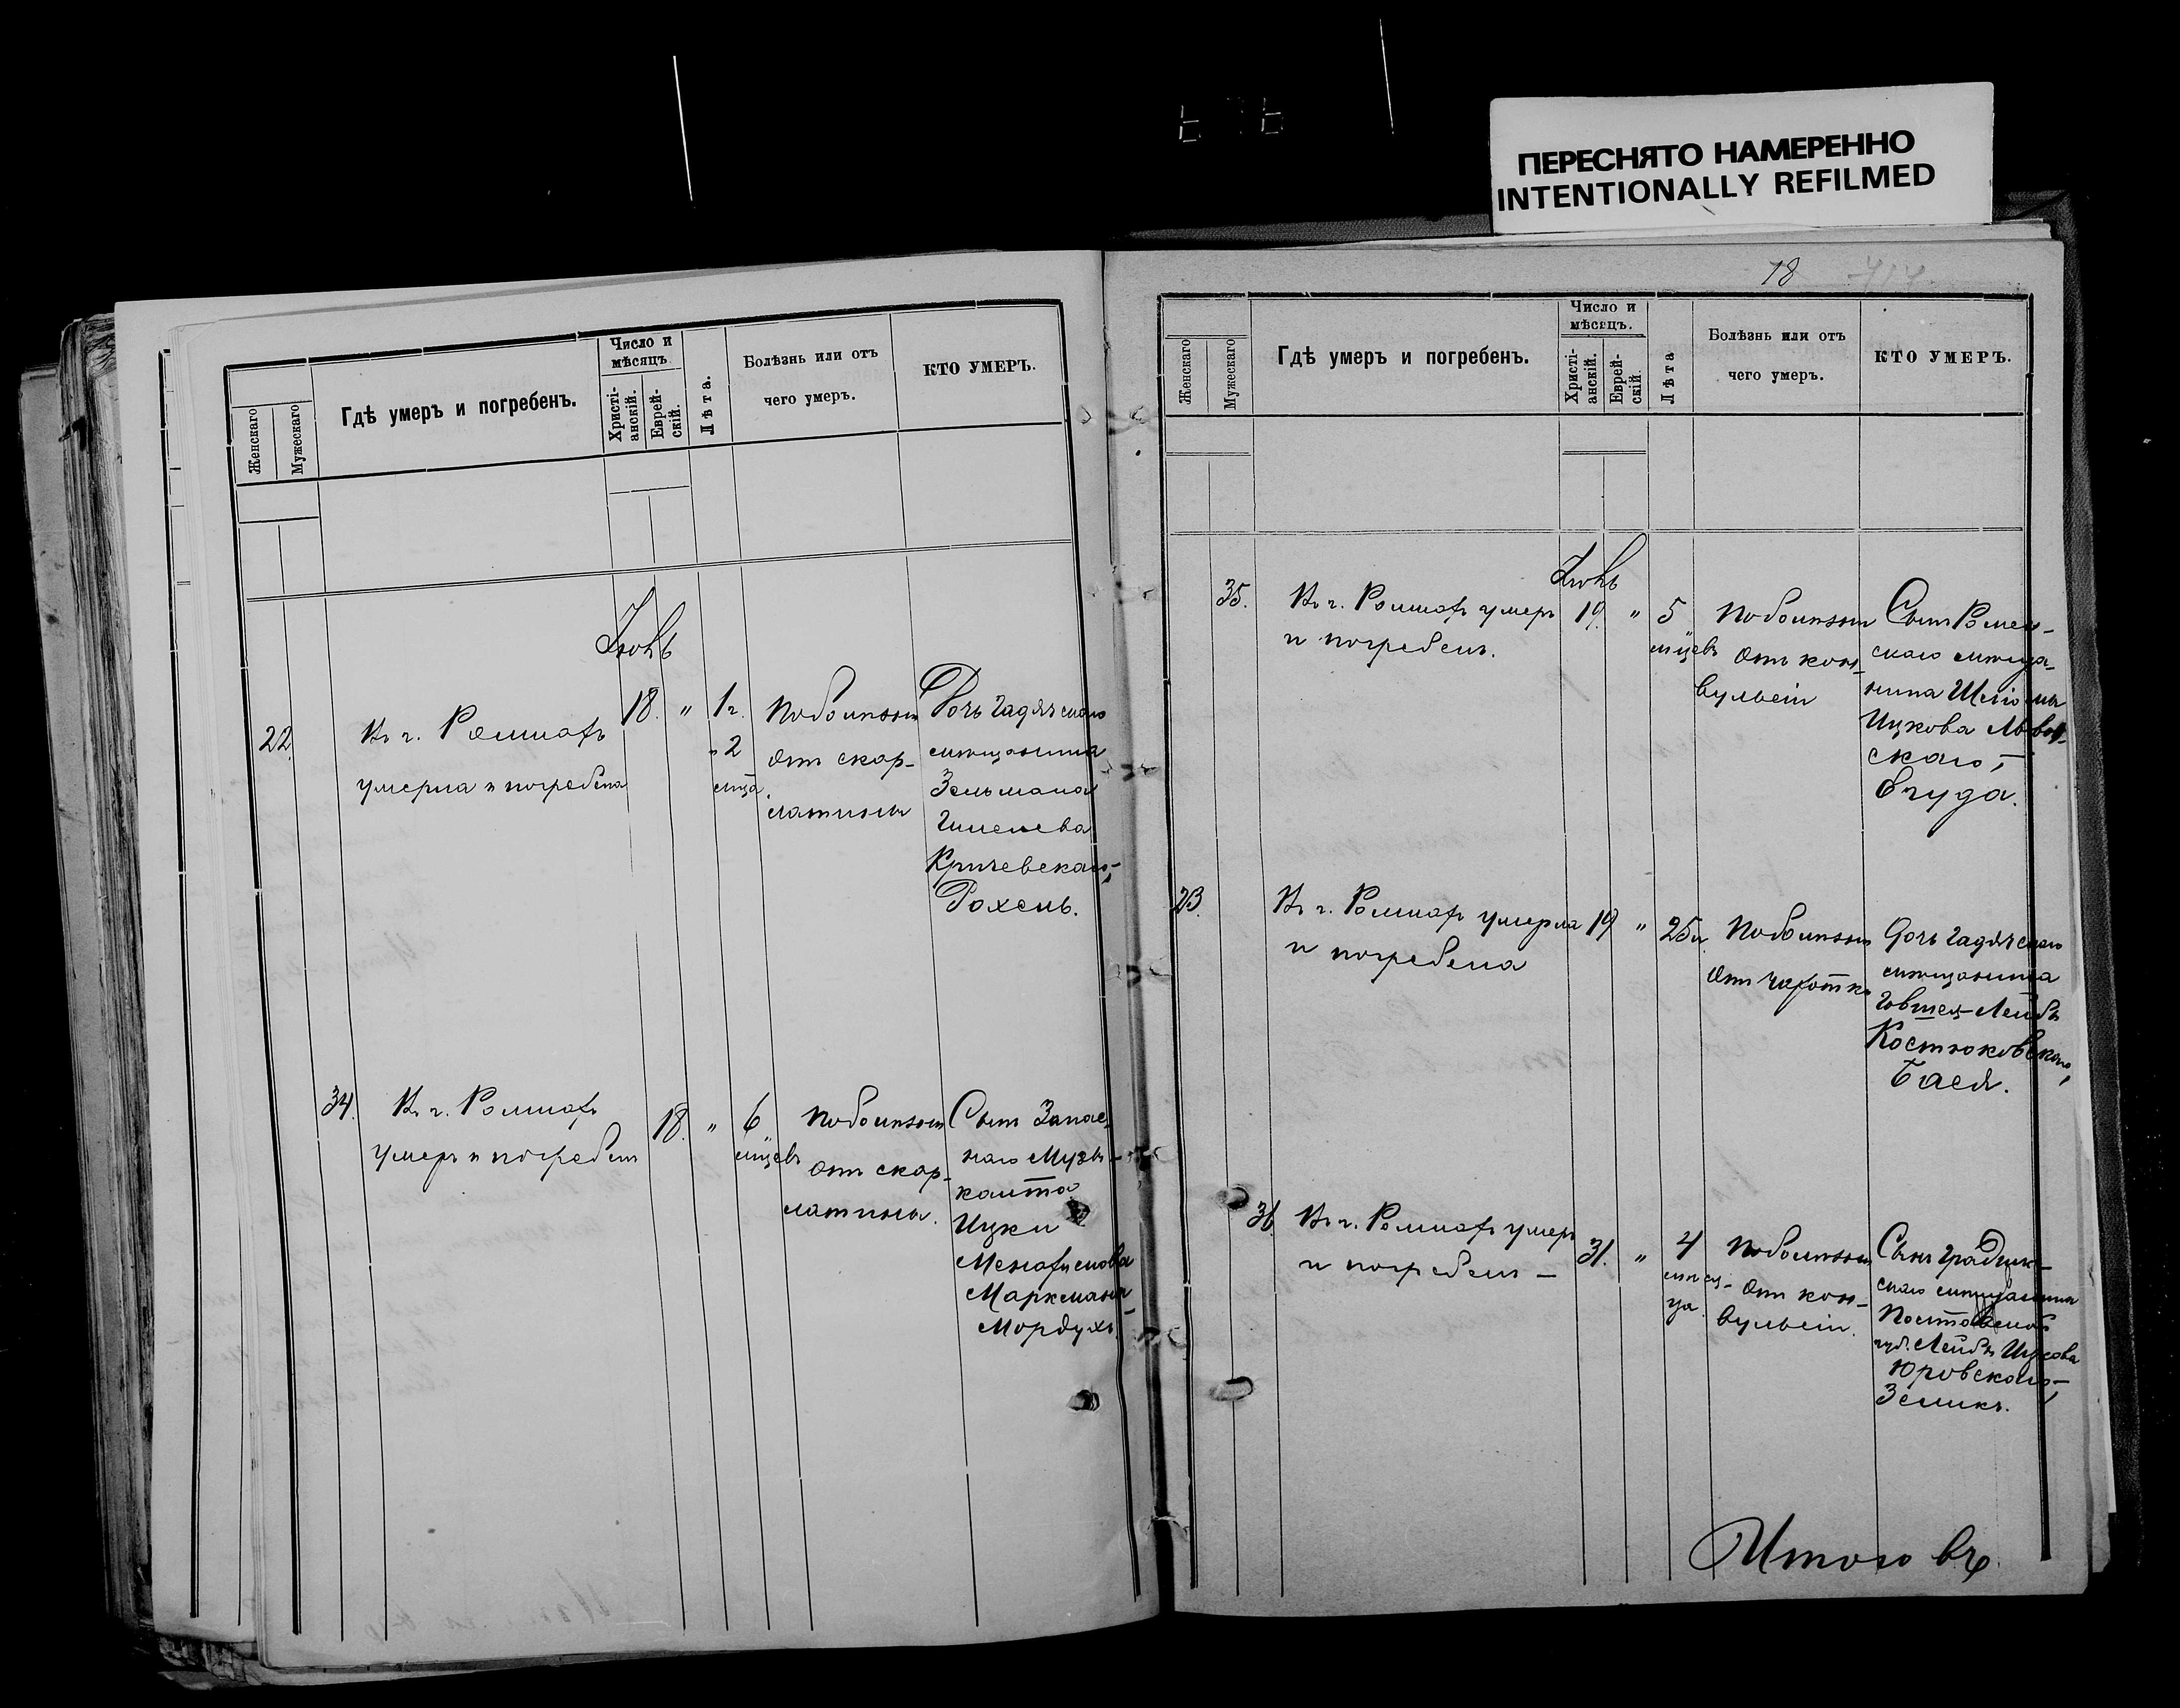 ПЕРЕСНЯТО НАМЕРЕННО
INTENTIONALLY REFILMED
Женскаго
Мужескаго
Гдѣ умеръ и погребенъ.
Число и
мѣсяцъ
Христі-
анскій.
Еврей-
скій.
Лѣта.
Болѣзнь или отъ
чего умеръ.
КТО УМЕРЪ.
22.
Въ г. Ромнахъ
умерла и погребена
18. "
1 г.
" 2
мца.
По болѣзни
отъ скар-
латины
Дочь Гадячскаго
мѣщанина
Зельмана
Кричевскаго,
Рохель.
34.
Въ г. Ромнахъ
умеръ и погребенъ
18. "
6
мцевъ
По болѣзни
отъ скар-
латины.
Сынъ Запас-
наго Музы-
канта
Ицки
Маркмана
Мордухъ.
18
Женскаго
Мужескаго
Гдѣ умеръ и погребенъ.
Число и
мѣсяцъ.
Христі-
анскій.
Еврей-
скій.
Лѣта
Болѣзнь или отъ
чего умеръ.
КТО УМЕРЪ.
35.
Въ г. Ромнахъ умеръ
и погребенъ.
19. "
5
мцевъ
По болѣзни
отъ кон-
вульсіи
Сынъ Ромен-
скаго мѣща-
нина
Ицкова Львов-
скаго,
23.
Въ г. Ромнахъ умерла
и погребена
19 "
25 л.
По болѣзни
отъ чахотки
Дочь Гадячскаго
мѣщанина
Лейбы
Костюковскаго,
Бася.
36
Въ г. Ромнахъ умеръ
и погребенъ –
31. "
4
мѣся-
ца
По болѣзни
отъ кон-
вульсіи.
Сынъ Градиж-
скаго мѣщанина
Полтавской
губ. Лейбы Ицкова
Юровскаго,
Зеликъ.
Итого въ